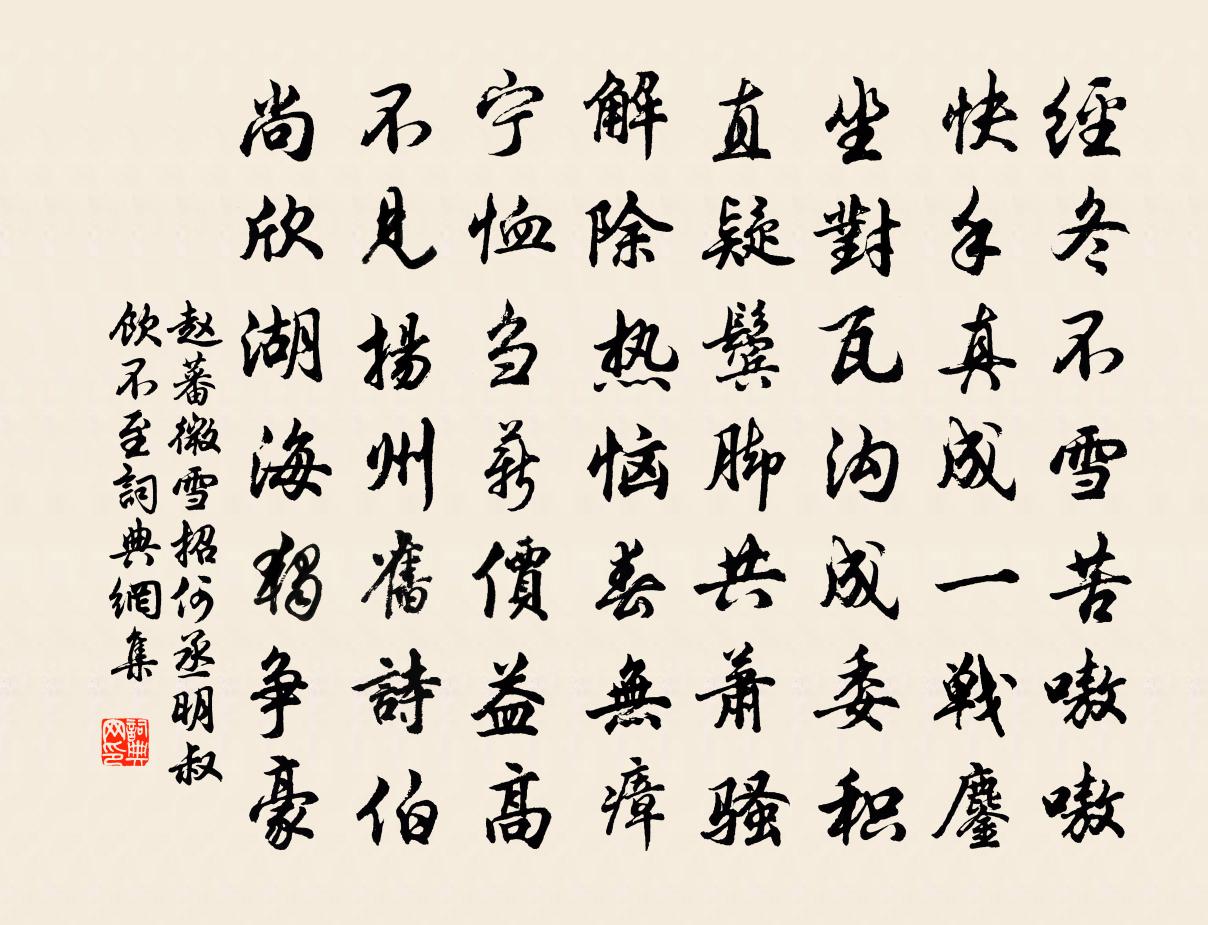 經冬不雪苦嗷嗷
快手真成一戰鏖
坐對瓦沟成委积
直疑鬓脚共萧骚
解除热恼春無瘴
宁恤刍薪價益高
不見揚州舊詩伯
尚欣湖海独争豪
赵蕃微雪招何丞明叔
饮不至詞典網集
詞典网印